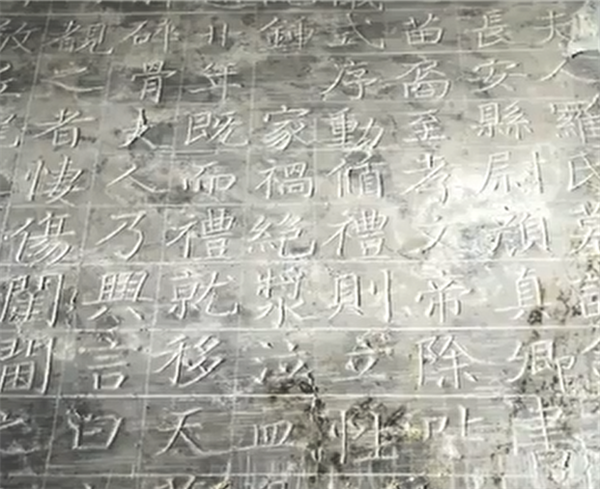 夫人羅氏墓
長安縣尉顏真卿書
苗裔至孝文帝除
式序動循禮則立性
鍾家禍絕漿泣血
丑年既而禮就移天
碎骨夫人乃興言曰
覩之者悽傷閨